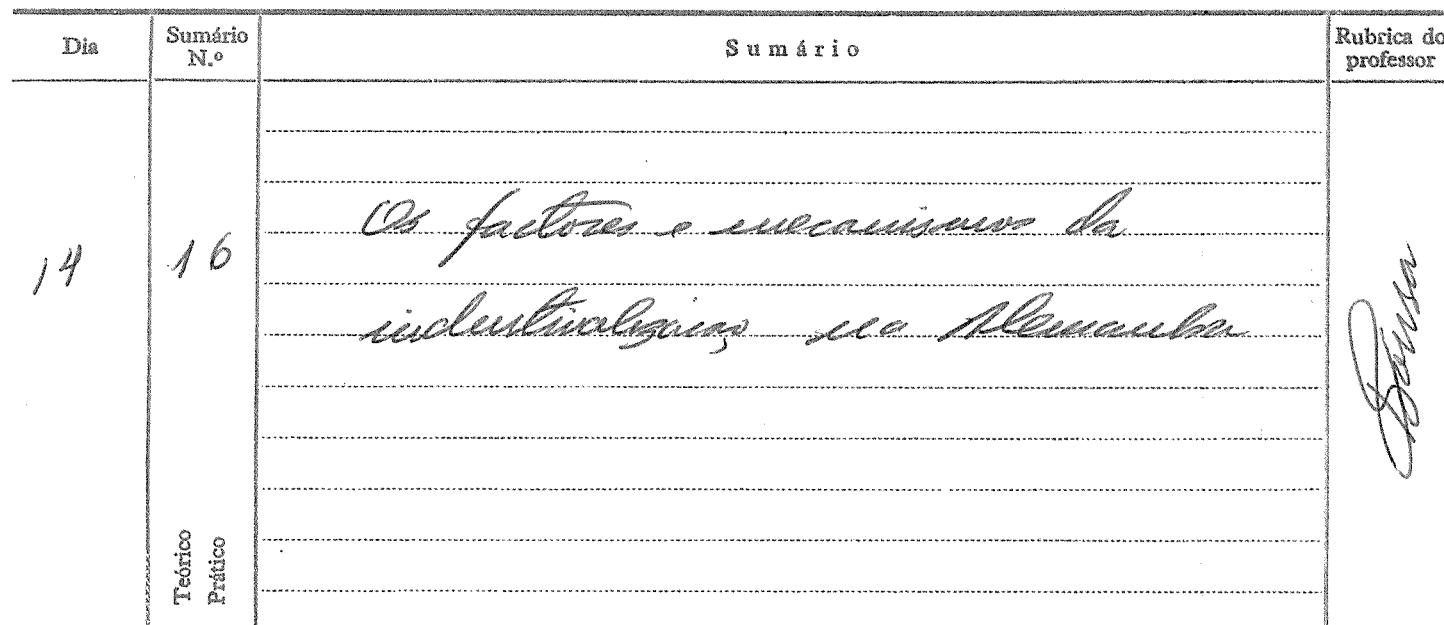 Dia
Sumário N.º
Sumário
Rubrica do professor
14
16
Os factores e mecanismos da
industrialização na Alemanha
Teórico
Prático